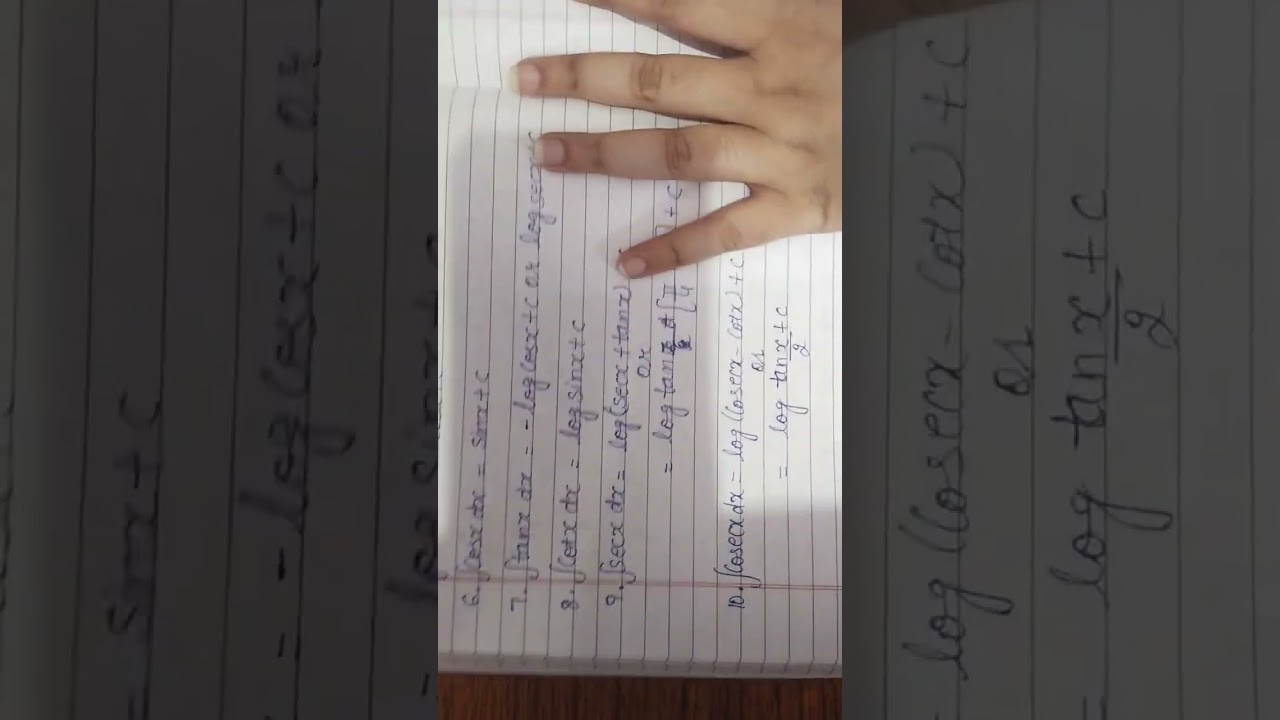 6. ∫cosx dx = sinx + c
7. ∫tanx dx = - log cosx + c or log secx
8. ∫cotx dx = log sinx + c
9. ∫secx dx = log(secx + tanx)
or
= log tan [π/4 + c
10. ∫cosecx dx = log(cosecx - cotx) + c
or
= log tan x/2 + c